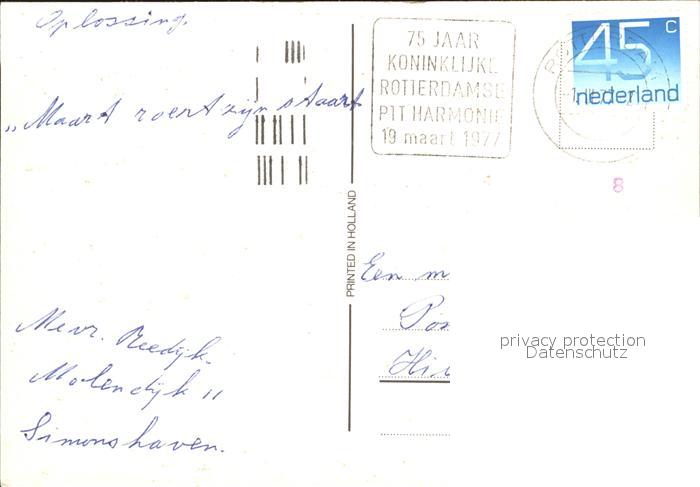 Oplossing.
„Maart roert zijn staart
Mevr. Reedijk.
Molendijk 11
Simonshaven.
75 JAAR
KONINKLIJKE
ROTTERDAMSE
PTT HARMONIE
19 maart 1977
45 c
nederland
8
PRINTED IN HOLLAND
Een m
Pos
Hil
privacy protection
Datenschutz